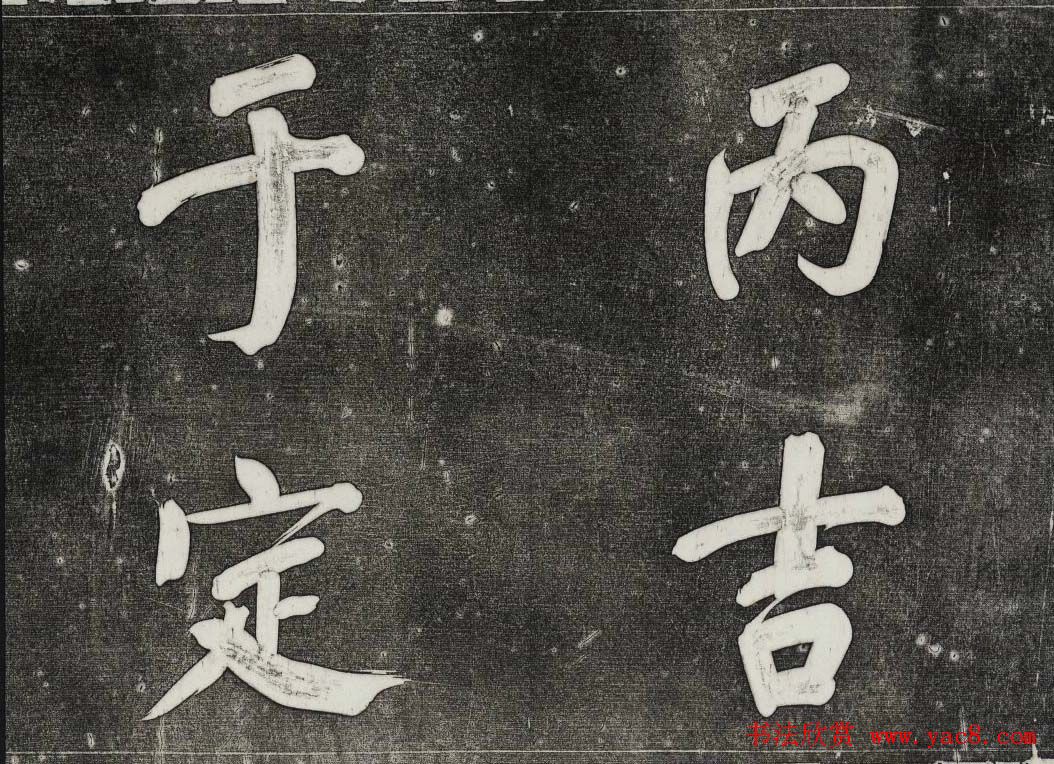 丙吉
于定
书法欣赏 www.yac8.com